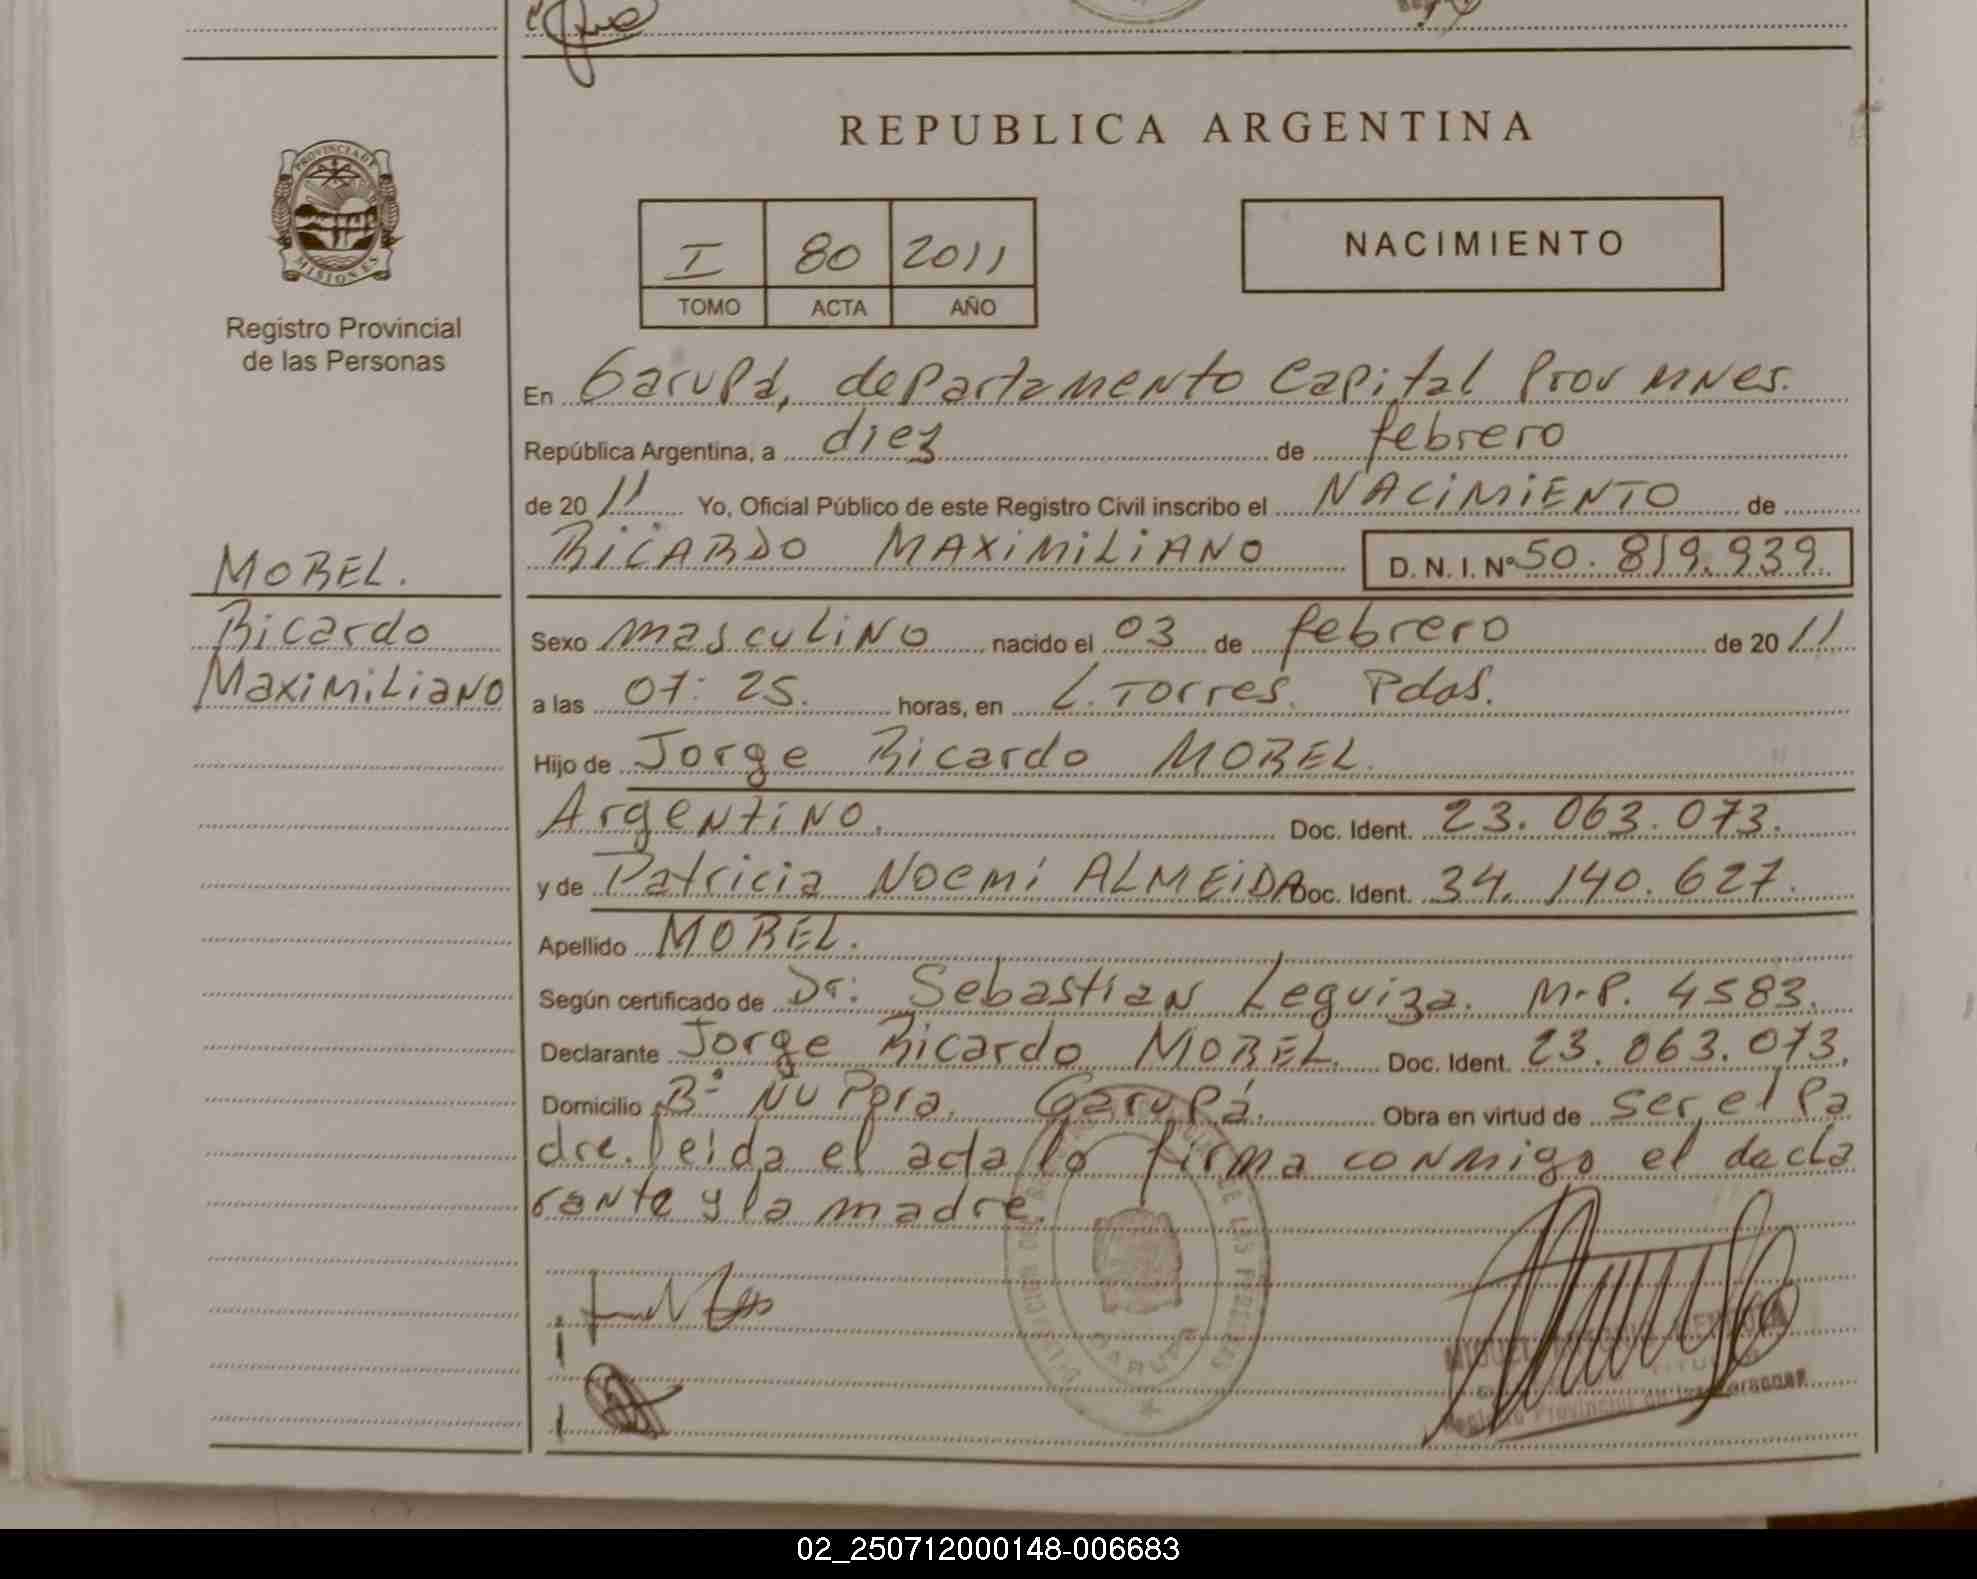 REPUBLICA ARGENTINA
PROVINCIA DE
MISIONES
Registro Provincial
de las Personas
I 80 2011
TOMO ACTA AÑO
NACIMIENTO
En Garupá, departamento Capital Prov MNes.
República Argentina, a diez de febrero
de 20 11 Yo, Oficial Público de este Registro Civil inscribo el NACIMIENTO de
RICARDO MAXIMILIANO D.N.I. Nº 50.819.939.
MOREL.
Ricardo
Maximiliano
Sexo masculino nacido el 03 de febrero de 20 11
a las 07:25. horas, en L. Torres. Pdas.
Hijo de Jorge Ricardo MOREL.
Argentino. Doc. Ident. 23.063.073.
y de Patricia Noemí ALMEIDA Doc. Ident. 34.140.627.
Apellido MOREL.
Según certificado de Dr: Sebastian Leguiza. M.P. 4583.
Declarante Jorge Ricardo MOREL. Doc. Ident. 23.063.073.
Domicilio Bº Ñu Pora. Garupá. Obra en virtud de ser el Pa
dre. leida el acta lo firma conmigo el decla
rante y la madre.
GARUPA
Registro Provincial de las Personas
02_250712000148-006683